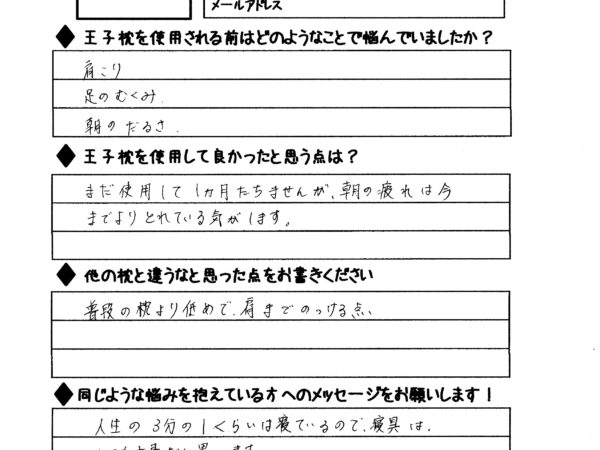 メールアドレス
◆ 王子枕を使用される前はどのようなことで悩んでいましたか？
肩こり
足のむくみ.
朝のだるさ.
◆ 王子枕を使用して良かったと思う点は？
まだ使用して1ヵ月たちませんが、朝の疲れは今
までよりとれている気がします。
◆ 他の枕と違うなと思った点をお書きください
普段の枕より低めで、肩までのっける点、
◆ 同じような悩みを抱えている方へのメッセージをお願いします！
人生の3分の1くらいは寝ているので、寝具は、